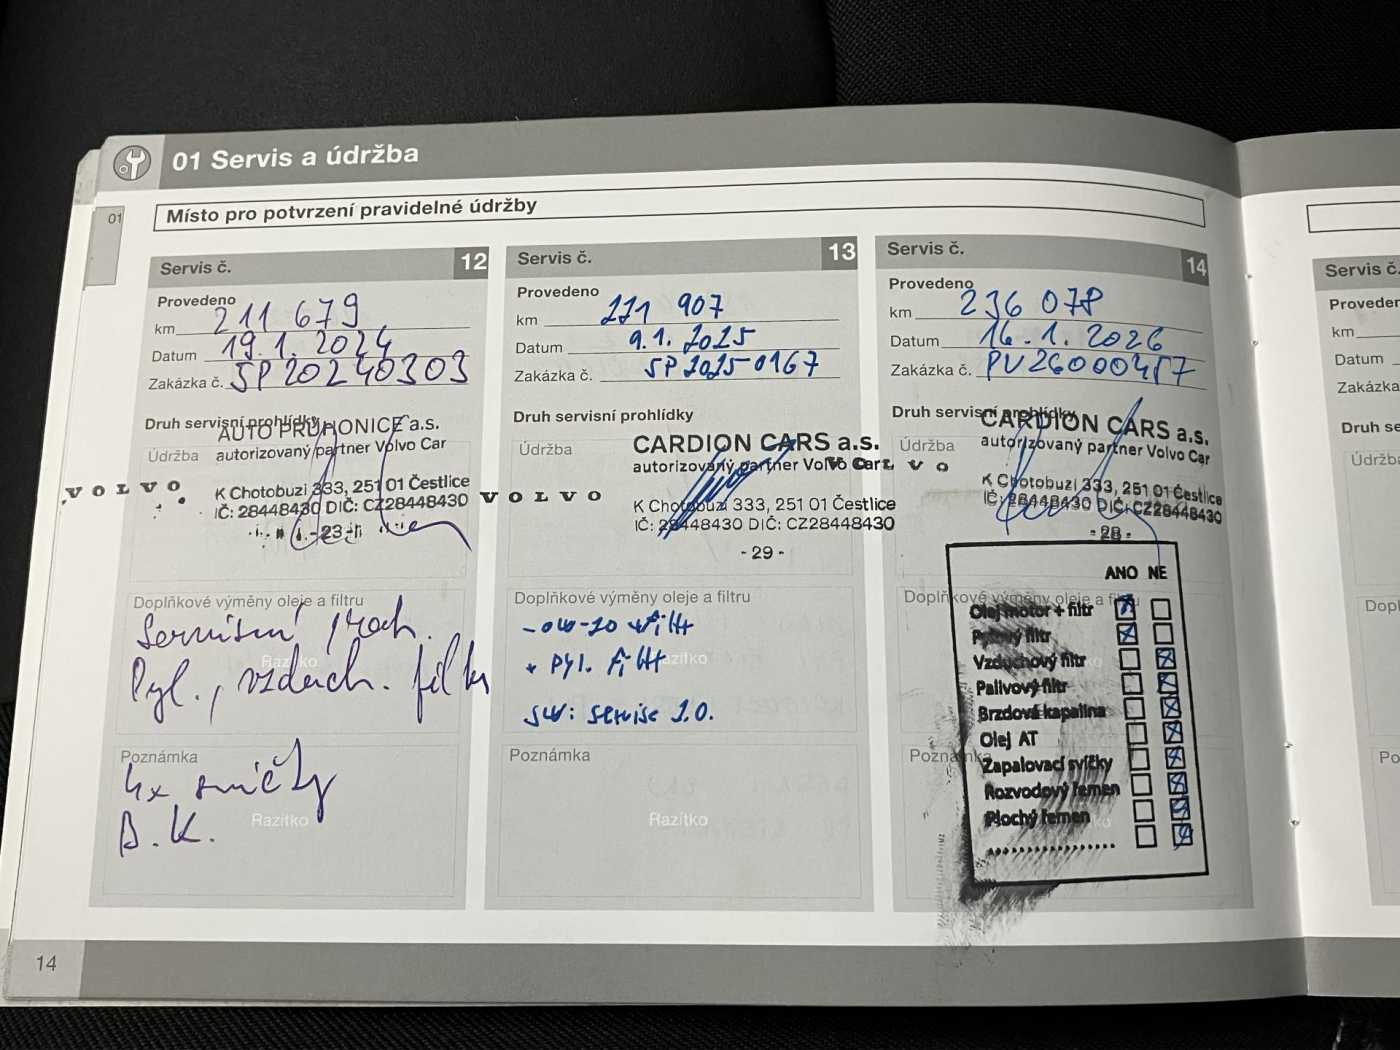 01 Servis a údržba
01
Místo pro potvrzení pravidelné údržby
Servis č. 12
Provedeno
km 211 679
Datum 19.1. 2024
Zakázka č. SP20240303
Druh servisní prohlídky
AUTO PRŮHONICE a.s.
Údržba
autorizovaný partner Volvo Car
VOLVO
K Chotobuzi 333, 251 01 Čestlice
IČ: 28448430 DIČ: CZ28448430
- 23 -
Doplňkové výměny oleje a filtru
Servisní proh.
Razítko
Pyl., vzduch. filtr
Poznámka
4x svíčky
Razítko
B.K.
Servis č. 13
Provedeno
km 221 907
Datum 9.1. 2025
Zakázka č. SP2025-0167
Druh servisní prohlídky
Údržba
CARDION CARS a.s.
autorizovaný partner Volvo Car
VOLVO
K Chotobuzi 333, 251 01 Čestlice
IČ: 28448430 DIČ: CZ28448430
- 29 -
Doplňkové výměny oleje a filtru
- 0W-20 + filtr
+ pyl. filtr
Razítko
SW: servise 2.0.
Poznámka
Razítko
Servis č. 14
Provedeno
km 236 078
Datum 16.1. 2026
Zakázka č. PV26000457
Druh servisní prohlídky
CARDION CARS a.s.
Údržba
autorizovaný partner Volvo Car
VOLVO
K Chotobuzi 333, 251 01 Čestlice
IČ: 28448430 DIČ: CZ28448430
- 28 -
ANO NE
Doplňkové výměny oleje a filtru
Olej motor + filtr
Pylový filtr
Vzduchový filtr
Palivový filtr
Brzdová kapalina
Olej AT
Poznámka
Zapalovací svíčky
Rozvodový řemen
Plochý řemen
14
Servis č.
Proveden
km
Datum
Zakázka
Druh se
Údržba
Dopl
Po